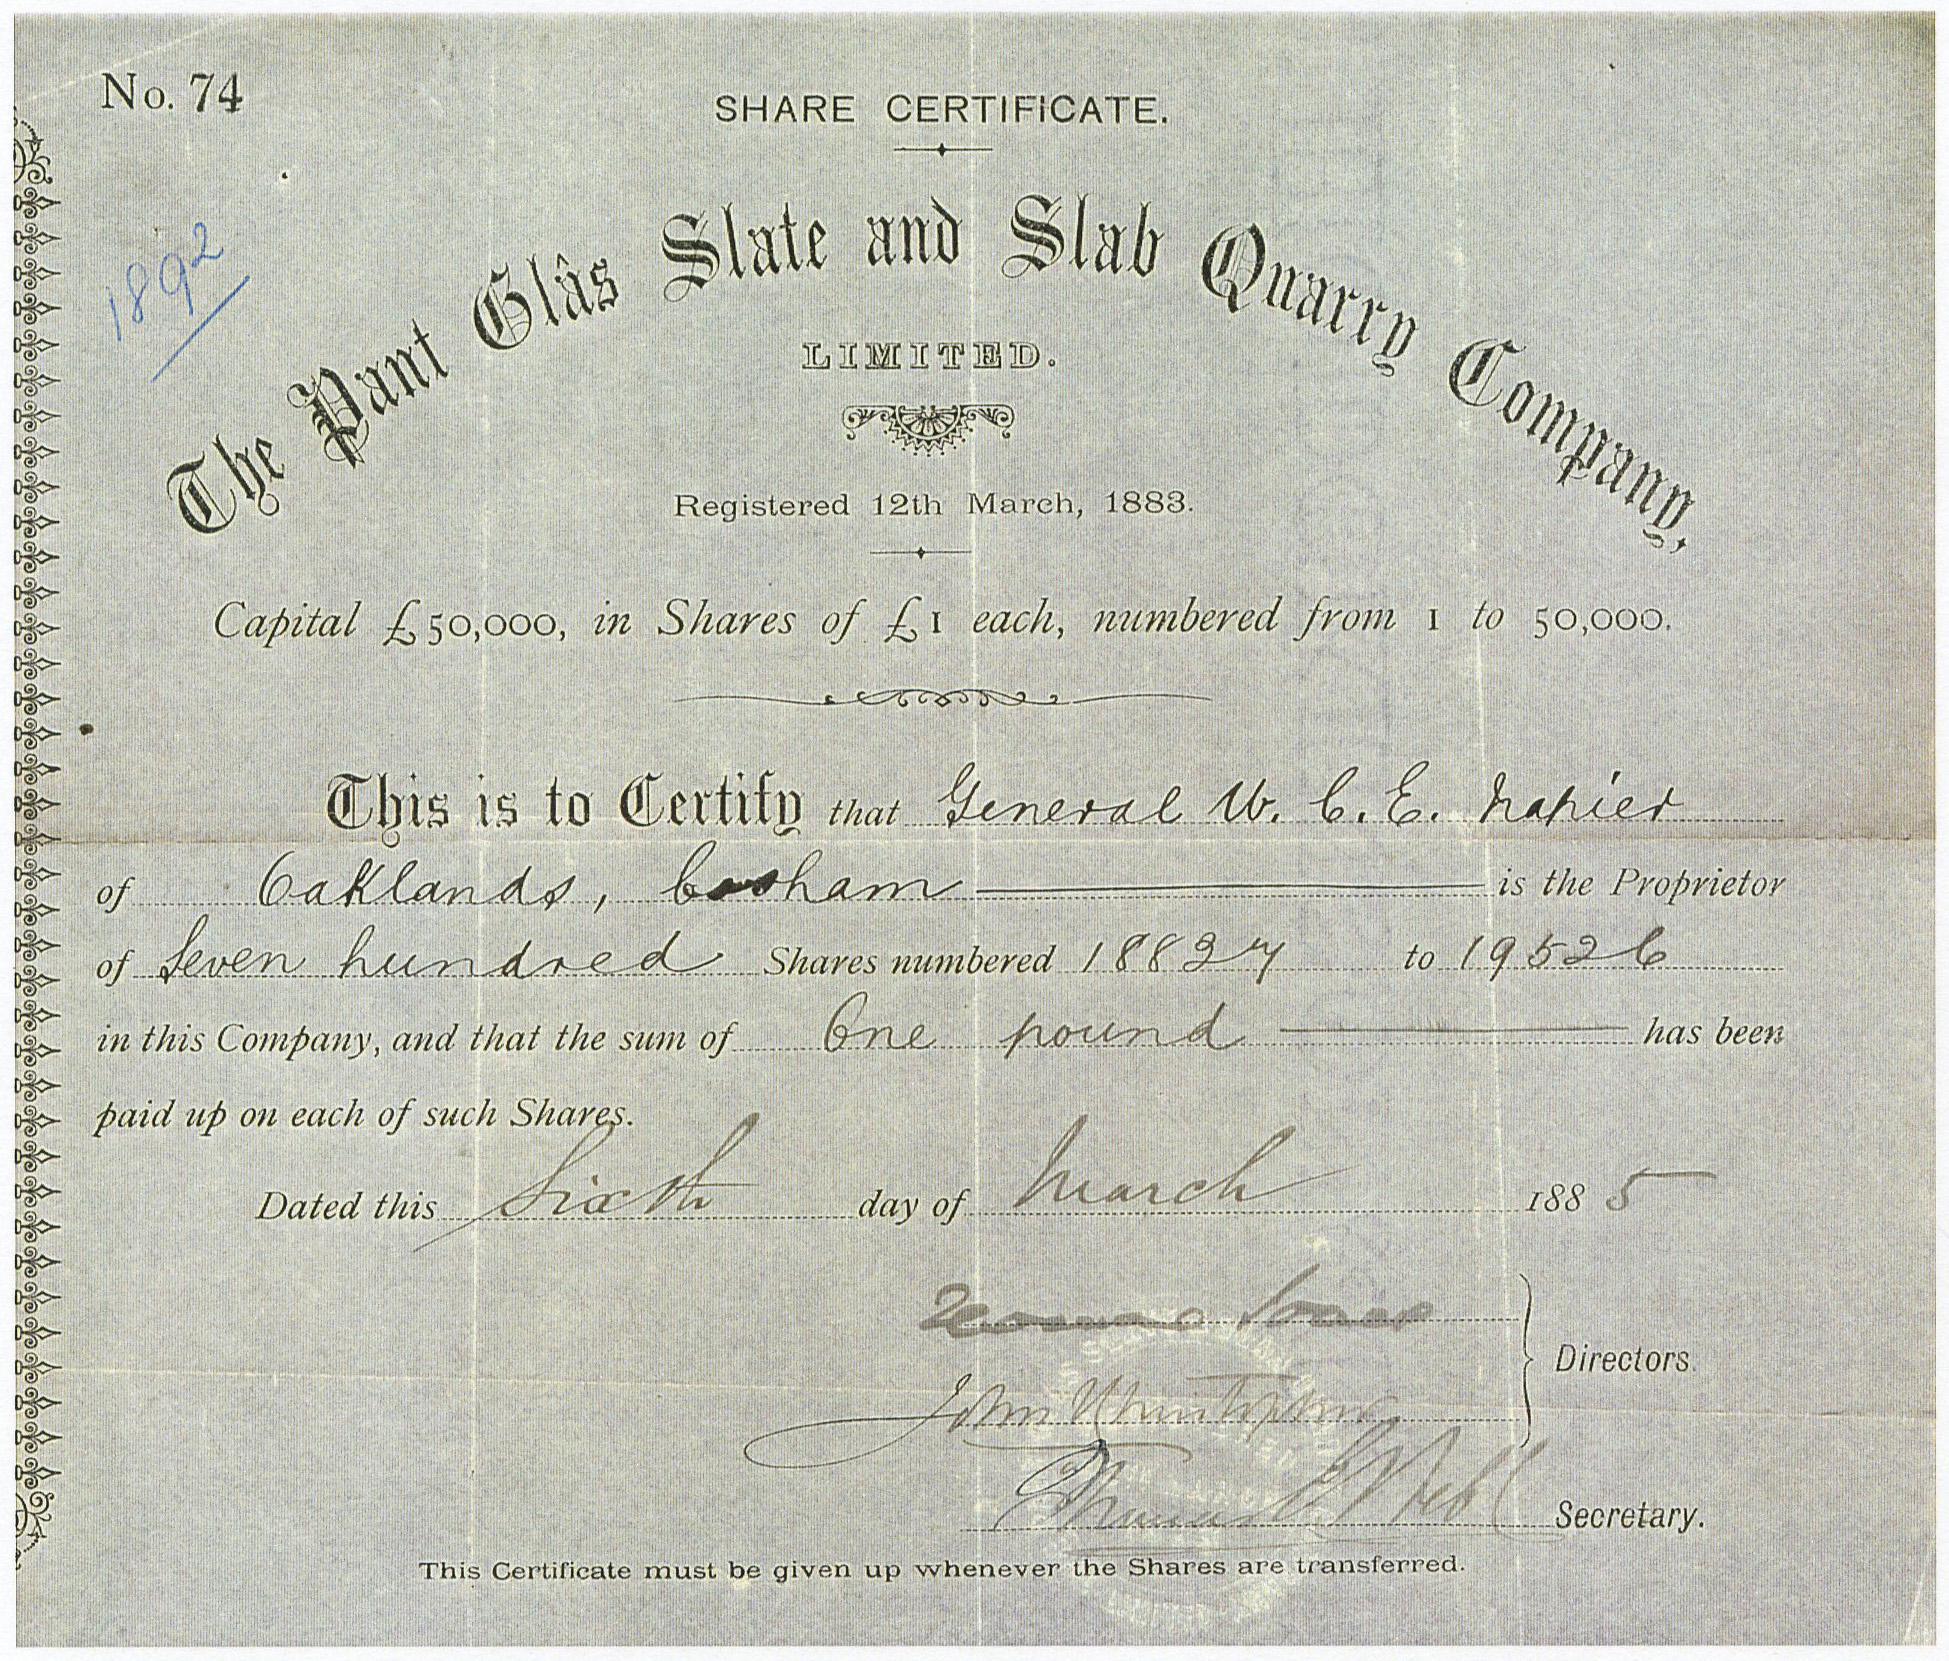 No. 74
SHARE CERTIFICATE.
1892
The Pant Glâs Slate and Slab Quarry Company,
LIMITED.
Registered 12th March, 1883.
Capital £50,000, in Shares of £1 each, numbered from 1 to 50,000.
This is to Certify that General W. C. E. Napier
of Oaklands, Cosham is the Proprietor
of Seven hundred Shares numbered 18827 to 19526
in this Company, and that the sum of One pound has been
paid up on each of such Shares.
Dated this Sixth day of March 1885
Directors.
John
Thomas Webb Secretary.
This Certificate must be given up whenever the Shares are transferred.